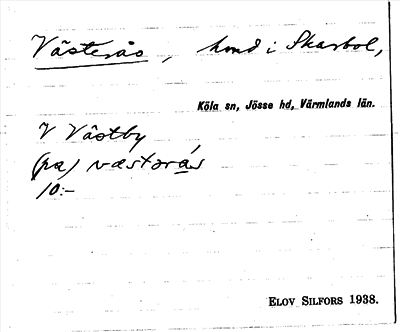 Västerås, hmd i Skarbol,
Köla sn, Jösse hd, Värmlands län.
V Västby
(pa) væstərás
10:-
ELOV SILFORS 1938.